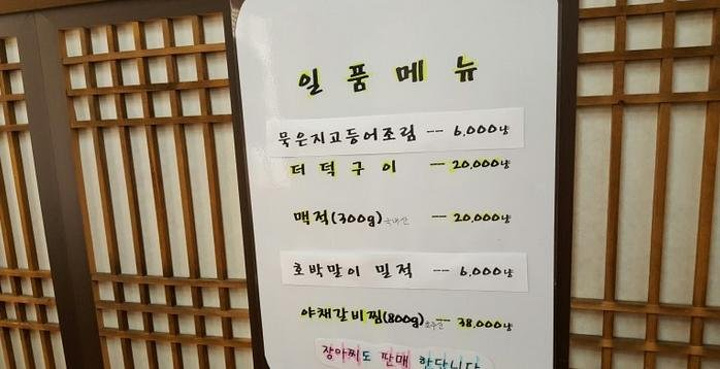 일품메뉴
묵은지고등어조림 -- 6,000냥
더덕구이 -- 20,000냥
맥적(300g) 국내산 -- 20,000냥
호박말이 밀적 -- 6,000냥
야채갈비찜(800g)호주산 -- 38,000냥
장아찌도 판매 한답니다